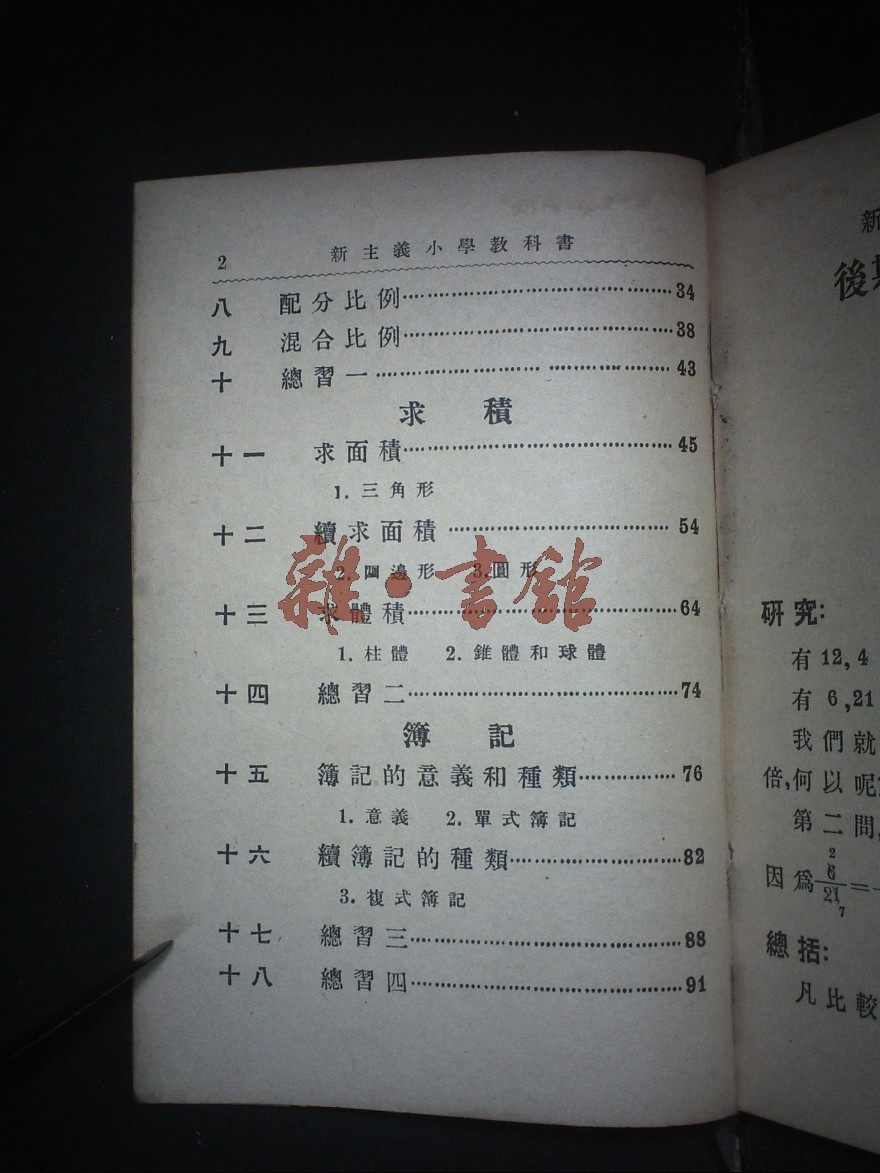 2 新主義小學教科書
八 配分比例……34
九 混合比例……38
十 總習一……43
求積
十一 求面積……45
1.三角形
十二 續求面積……54
2.四邊形 3.圓形
十三 求體積……64
1.柱體 2.錐體和球體
十四 總習二……74
簿記
十五 簿記的意義和種類……76
1.意義 2.單式簿記
十六 續簿記的種類……82
3.複式簿記
十七 總習三……88
十八 總習四……91
雜·書館
新
後
研究:
有12,4
有6,21
我們就
倍,何以呢
第二問,
2
因爲6/21=
7
總括:
凡比較